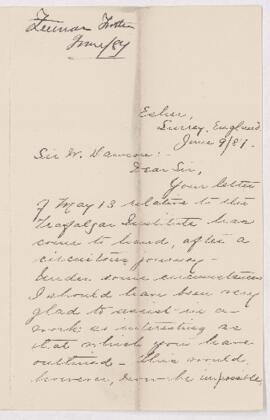 June/87
Esher,
Surrey, England
June 9/87.
Sir W. Dawson:-
Dear Sir,
Your letter
of May 13 relative to the
Trafalgar Institute has
come to hand, after a
circuitous journey.
Under some circumstances
I should have been very
glad to assist in a
work as interesting as
that which you have
outlined - this would,
however, now be impossible,